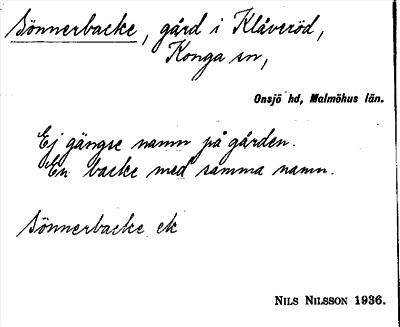 Bönnerbacke, gård i Klåveröd,
Konga sn,
Onsjö hd, Malmöhus län.
Ej gängse namn på gården.
En backe med samma namn.
Bönnerbacke ek
NILS NILSSON 1936.